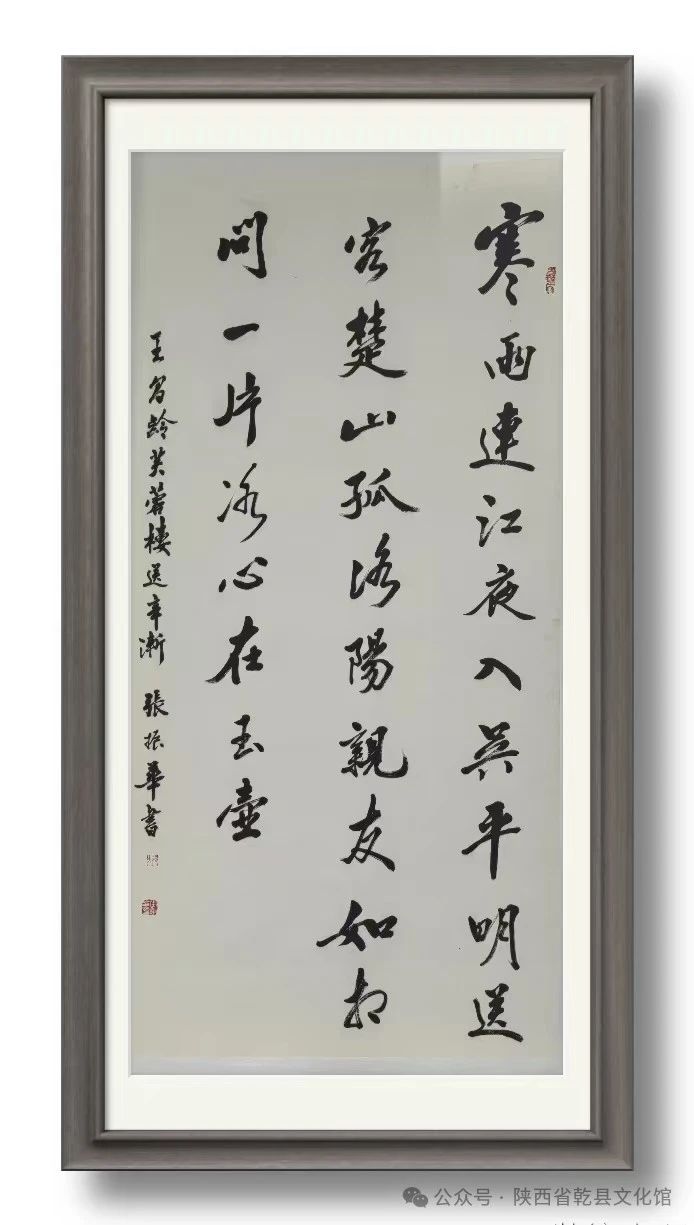 寒雨連江夜入吳平明送
客楚山孤洛陽親友如相
問一片冰心在玉壺
王昌齡芙蓉樓送辛漸 張振華書
公众号 · 陕西省乾县文化馆